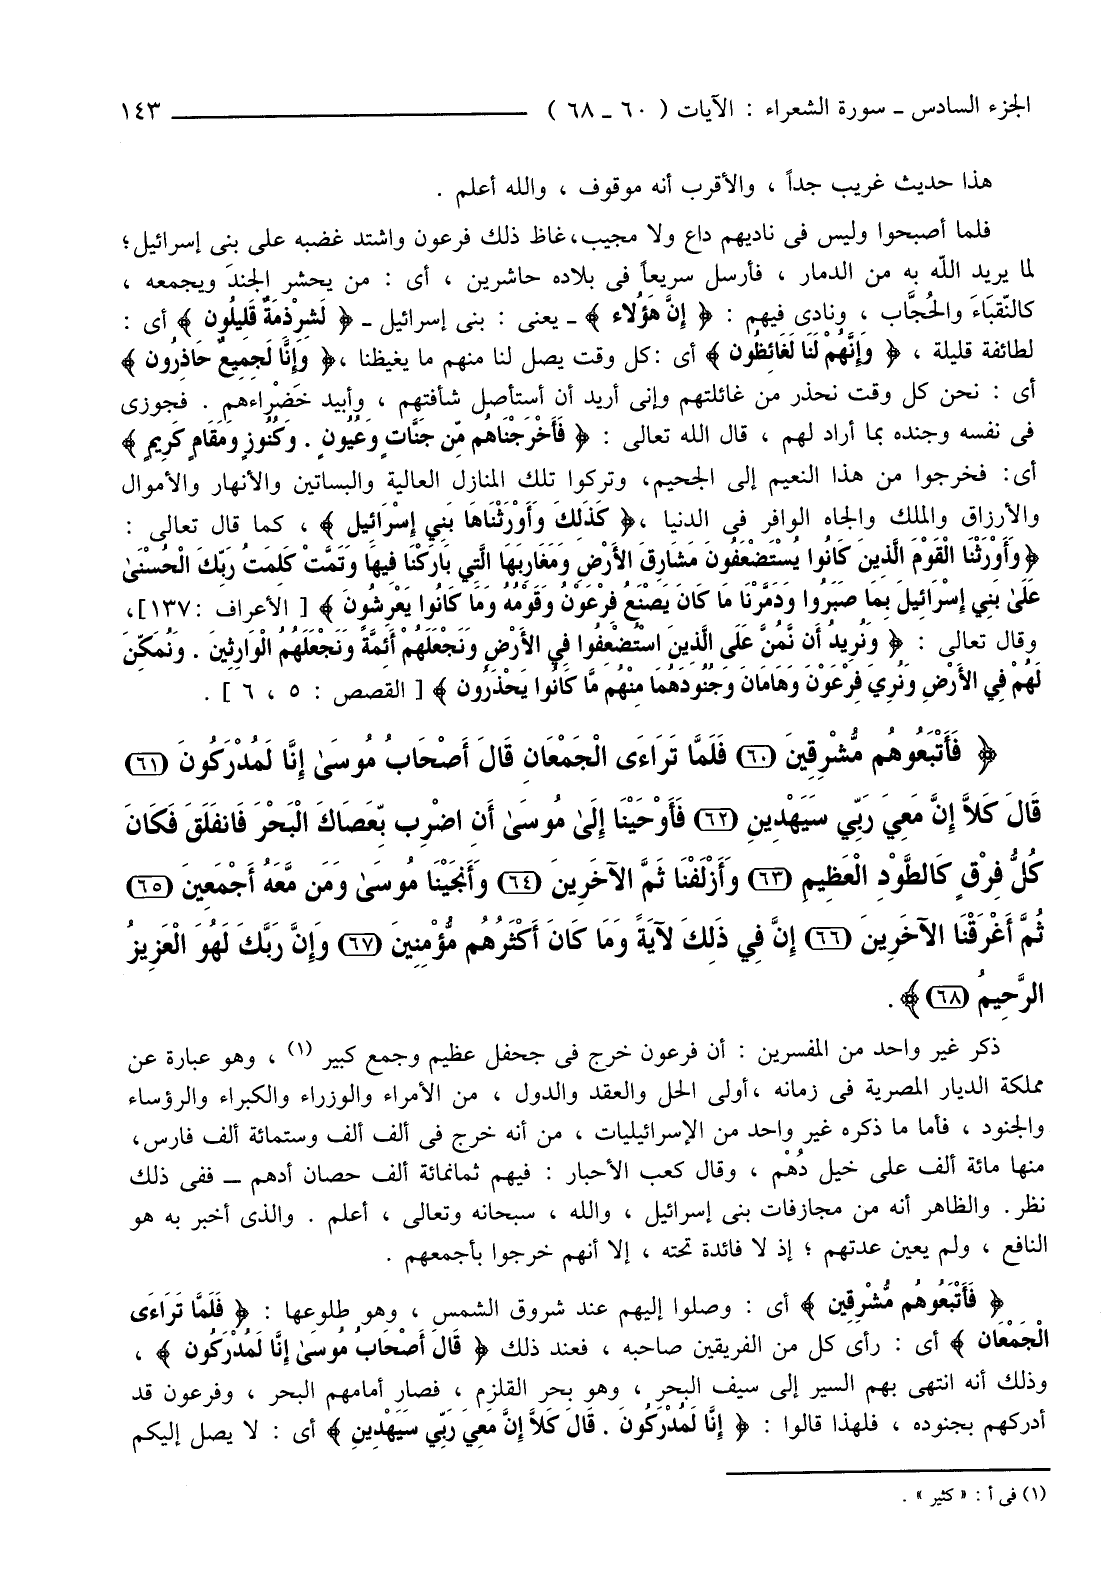 الجزء السادس ـ سورة الشعراء : الآيات ( ٦٠ ـ ٦٨ ) ١٤٣
هذا حديث غريب جداً ، والأقرب أنه موقوف ، والله أعلم .
فلما أصبحوا وليس فى ناديهم داع ولا مجيب، غاظ ذلك فرعون واشتد غضبه على بنى إسرائيل؛
لما يريد اللّه به من الدمار ، فأرسل سريعاً فى بلاده حاشرين ، أى : من يحشر الجندَ ويجمعه ،
كالنّقبَاءَ والحُجَّاب ، ونادى فيهم : ﴿ إِنَّ هَؤُلاء ﴾ ـ يعنى : بنى إسرائيل ـ ﴿ لَشِرْذِمَةٌ قَلِيلُون ﴾ أى :
لطائفة قليلة ، ﴿ وَإِنَّهُمْ لَنَا لَغَائِظُون ﴾ أى :كل وقت يصل لنا منهم ما يغيظنا ،﴿ وَإِنَّا لَجَمِيعٌ حَاذِرُون ﴾
أى : نحن كل وقت نحذر من غائلتهم وإنى أريد أن أستأصل شأفتهم ، وأبيد خَضْراءهم . فجوزى
فى نفسه وجنده بما أراد لهم ، قال الله تعالى : ﴿ فَأَخْرَجْنَاهُم مِّن جَنَّاتٍ وَعُيُونٍ . وَكُنُوزٍ وَمَقَامٍ كَرِيمٍ ﴾
أى: فخرجوا من هذا النعيم إلى الجحيم، وتركوا تلك المنازل العالية والبساتين والأنهار والأموال
والأرزاق والملك والجاه الوافر فى الدنيا ،﴿ كَذَلِكَ وَأَوْرَثْنَاهَا بَنِي إِسْرَائِيل ﴾ ، كما قال تعالى :
﴿وَأَوْرَثْنَا الْقَوْمَ الَّذِينَ كَانُوا يُسْتَضْعَفُونَ مَشَارِقَ الأَرْضِ وَمَغَارِبَهَا الَّتِي بَارَكْنَا فِيهَا وَتَمَّتْ كَلِمَتُ رَبِّكَ الْحُسْنَىٰ
عَلَىٰ بَنِي إِسْرَائِيلَ بِمَا صَبَرُوا وَدَمَّرْنَا مَا كَانَ يَصْنَعُ فِرْعَوْنُ وَقَوْمُهُ وَمَا كَانُوا يَعْرِشُونَ ﴾ [ الأعراف :١٣٧]،
وقال تعالى : ﴿ وَنُرِيدُ أَن نَّمُنَّ عَلَى الَّذِينَ اسْتُضْعِفُوا فِي الأَرْضِ وَنَجْعَلَهُمْ أَئِمَّةً وَنَجْعَلَهُمُ الْوَارِثِينَ . وَنُمَكِّنَ
لَهُمْ فِي الأَرْضِ وَنُرِي فِرْعَوْنَ وَهَامَانَ وَجُنُودَهُمَا مِنْهُم مَّا كَانُوا يَحْذَرُون ﴾ [ القصص : ٥ ، ٦ ] .
﴿ فَأَتْبَعُوهُم مُّشْرِقِينَ (٦٠) فَلَمَّا تَرَاءَى الْجَمْعَانِ قَالَ أَصْحَابُ مُوسَىٰ إِنَّا لَمُدْرَكُونَ (٦١)
قَالَ كَلاَّ إِنَّ مَعِيَ رَبِّي سَيَهْدِينِ (٦٢) فَأَوْحَيْنَا إِلَىٰ مُوسَىٰ أَنِ اضْرِب بِّعَصَاكَ الْبَحْرَ فَانفَلَقَ فَكَانَ
كُلُّ فِرْقٍ كَالطَّوْدِ الْعَظِيمِ (٦٣) وَأَزْلَفْنَا ثَمَّ الآخَرِينَ (٦٤) وَأَنجَيْنَا مُوسَىٰ وَمَن مَّعَهُ أَجْمَعِينَ (٦٥)
ثُمَّ أَغْرَقْنَا الآخَرِينَ (٦٦) إِنَّ فِي ذَلِكَ لآيَةً وَمَا كَانَ أَكْثَرُهُم مُّؤْمِنِينَ (٦٧) وَإِنَّ رَبَّكَ لَهُوَ الْعَزِيزُ
الرَّحِيمُ (٦٨) ﴾ .
ذكر غير واحد من المفسرين : أن فرعون خرج فى جحفل عظيم وجمع كبير (١) ، وهو عبارة عن
مملكة الديار المصرية فى زمانه ،أولى الحل والعقد والدول ، من الأمراء والوزراء والكبراء والرؤساء
والجنود ، فأما ما ذكره غير واحد من الإسرائيليات ، من أنه خرج فى ألف ألف وستمائة ألف فارس،
منها مائة ألف على خيل دُهْم ، وقال كعب الأحبار : فيهم ثمانمائة ألف حصان أدهم ـ ففى ذلك
نظر. والظاهر أنه من مجازفات بنى إسرائيل ، والله ، سبحانه وتعالى ، أعلم . والذى أخبر به هو
النافع ، ولم يعين عدتهم ؛ إذ لا فائدة تحته ، إلا أنهم خرجوا بأجمعهم .
﴿ فَأَتْبَعُوهُم مُّشْرِقِين ﴾ أى : وصلوا إليهم عند شروق الشمس ، وهو طلوعها : ﴿ فَلَمَّا تَرَاءَى
الْجَمْعَان ﴾ أى : رأى كل من الفريقين صاحبه ، فعند ذلك ﴿ قَالَ أَصْحَابُ مُوسَىٰ إِنَّا لَمُدْرَكُون ﴾ ،
وذلك أنه انتهى بهم السير إلى سيف البحر ، وهو بحر القلزم ، فصار أمامهم البحر ، وفرعون قد
أدركهم بجنوده ، فلهذا قالوا : ﴿ إِنَّا لَمُدْرَكُونَ . قَالَ كَلاَّ إِنَّ مَعِيَ رَبِّي سَيَهْدِينِ ﴾ أى : لا يصل إليكم
(١) فى أ : « كثير » .